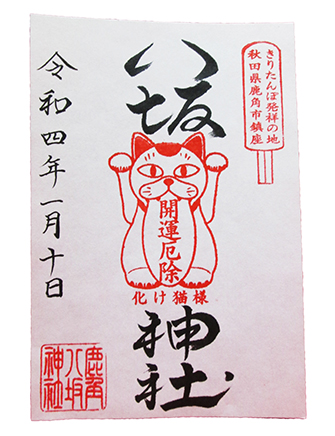 きりたんぽ発祥の地
秋田県鹿角市鎮座
八坂
神社
開運厄除
化け猫様
令和四年一月十日
鹿角
八坂
神社